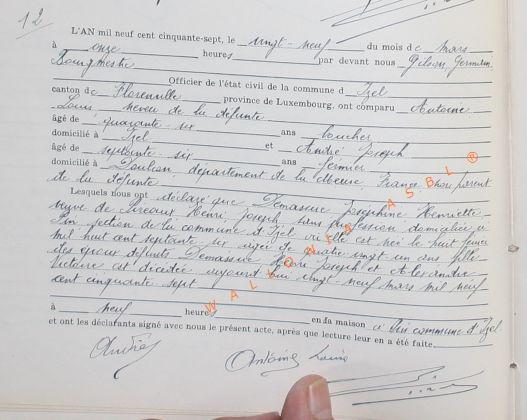 12
L'AN mil neuf cent cinquante-sept, le vingt-neuf du mois de mars
à onze heures par devant nous Gilson, Germain,
Bourgmestre
Officier de l'état civil de la commune d'Izel
canton de Florenville province de Luxembourg, ont comparu Antoine
Louis neveu de la défunte
âgé de quarante six ans
domicilié à Izel et André Joseph
âgé de septante-six ans
domicilié à département de la Meuse, France non parent
de la défunte
Lesquels nous ont déclaré que Demasure Joséphine Henriette
veuve de Henri Joseph sans profession domiciliée à
Pin section de la commune d'Izel où elle est née le huit
mil huit cent septante six âgée de quatre vingt un ans fille
des époux défunts Demasure Henri Joseph et Alexandre
Victoire est décédée aujourd'hui vingt neuf mars mil neuf
cent cinquante sept
à neuf heures en la maison à Pin commune d'Izel
et ont les déclarants signé avec nous le présent acte, après que lecture leur en a été faite.
André
Antoine Louis
WALLONIA ASBL ®